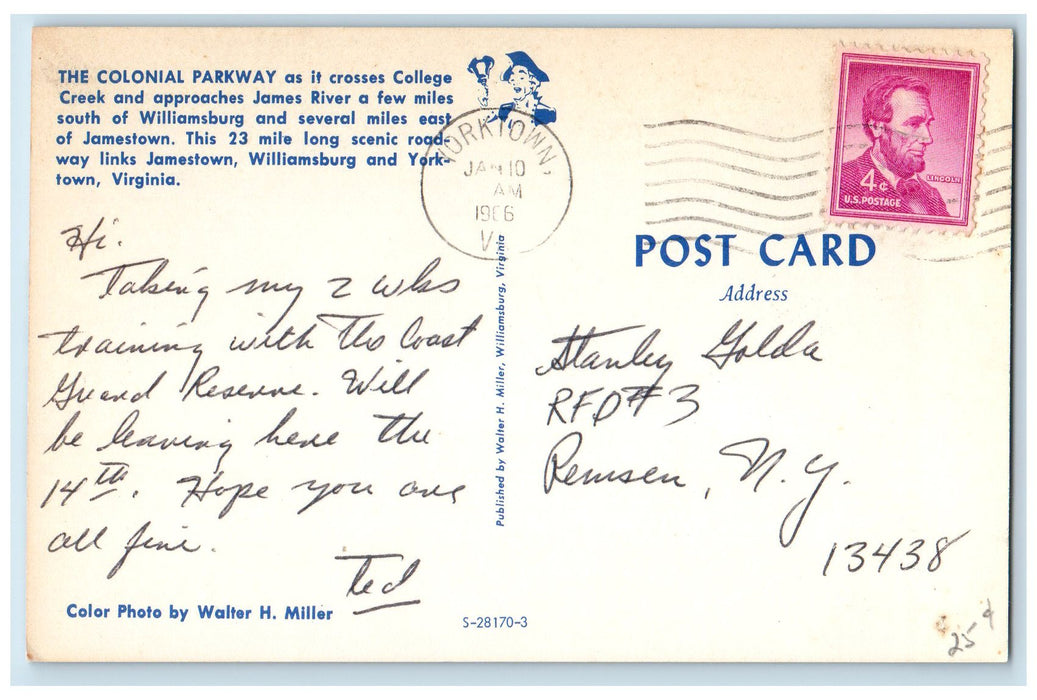 THE COLONIAL PARKWAY as it crosses College
Creek and approaches James River a few miles
south of Williamsburg and several miles east
of Jamestown. This 23 mile long scenic road-
way links Jamestown, Williamsburg and York-
town, Virginia.
YORKTOWN,
JAN 10
AM
1966
VA
4¢
U.S. POSTAGE
LINCOLN
Hi.
Taking my 2 wks
training with the Coast
Guard Reserve. Will
be leaving here the
14th. Hope you are
all fine.
Ted
Color Photo by Walter H. Miller
S-28170-3
Published by Walter H. Miller, Williamsburg, Virginia
POST CARD
Address
Stanley Golda
RFD # 3
Remsen, N.Y.
13438
25¢